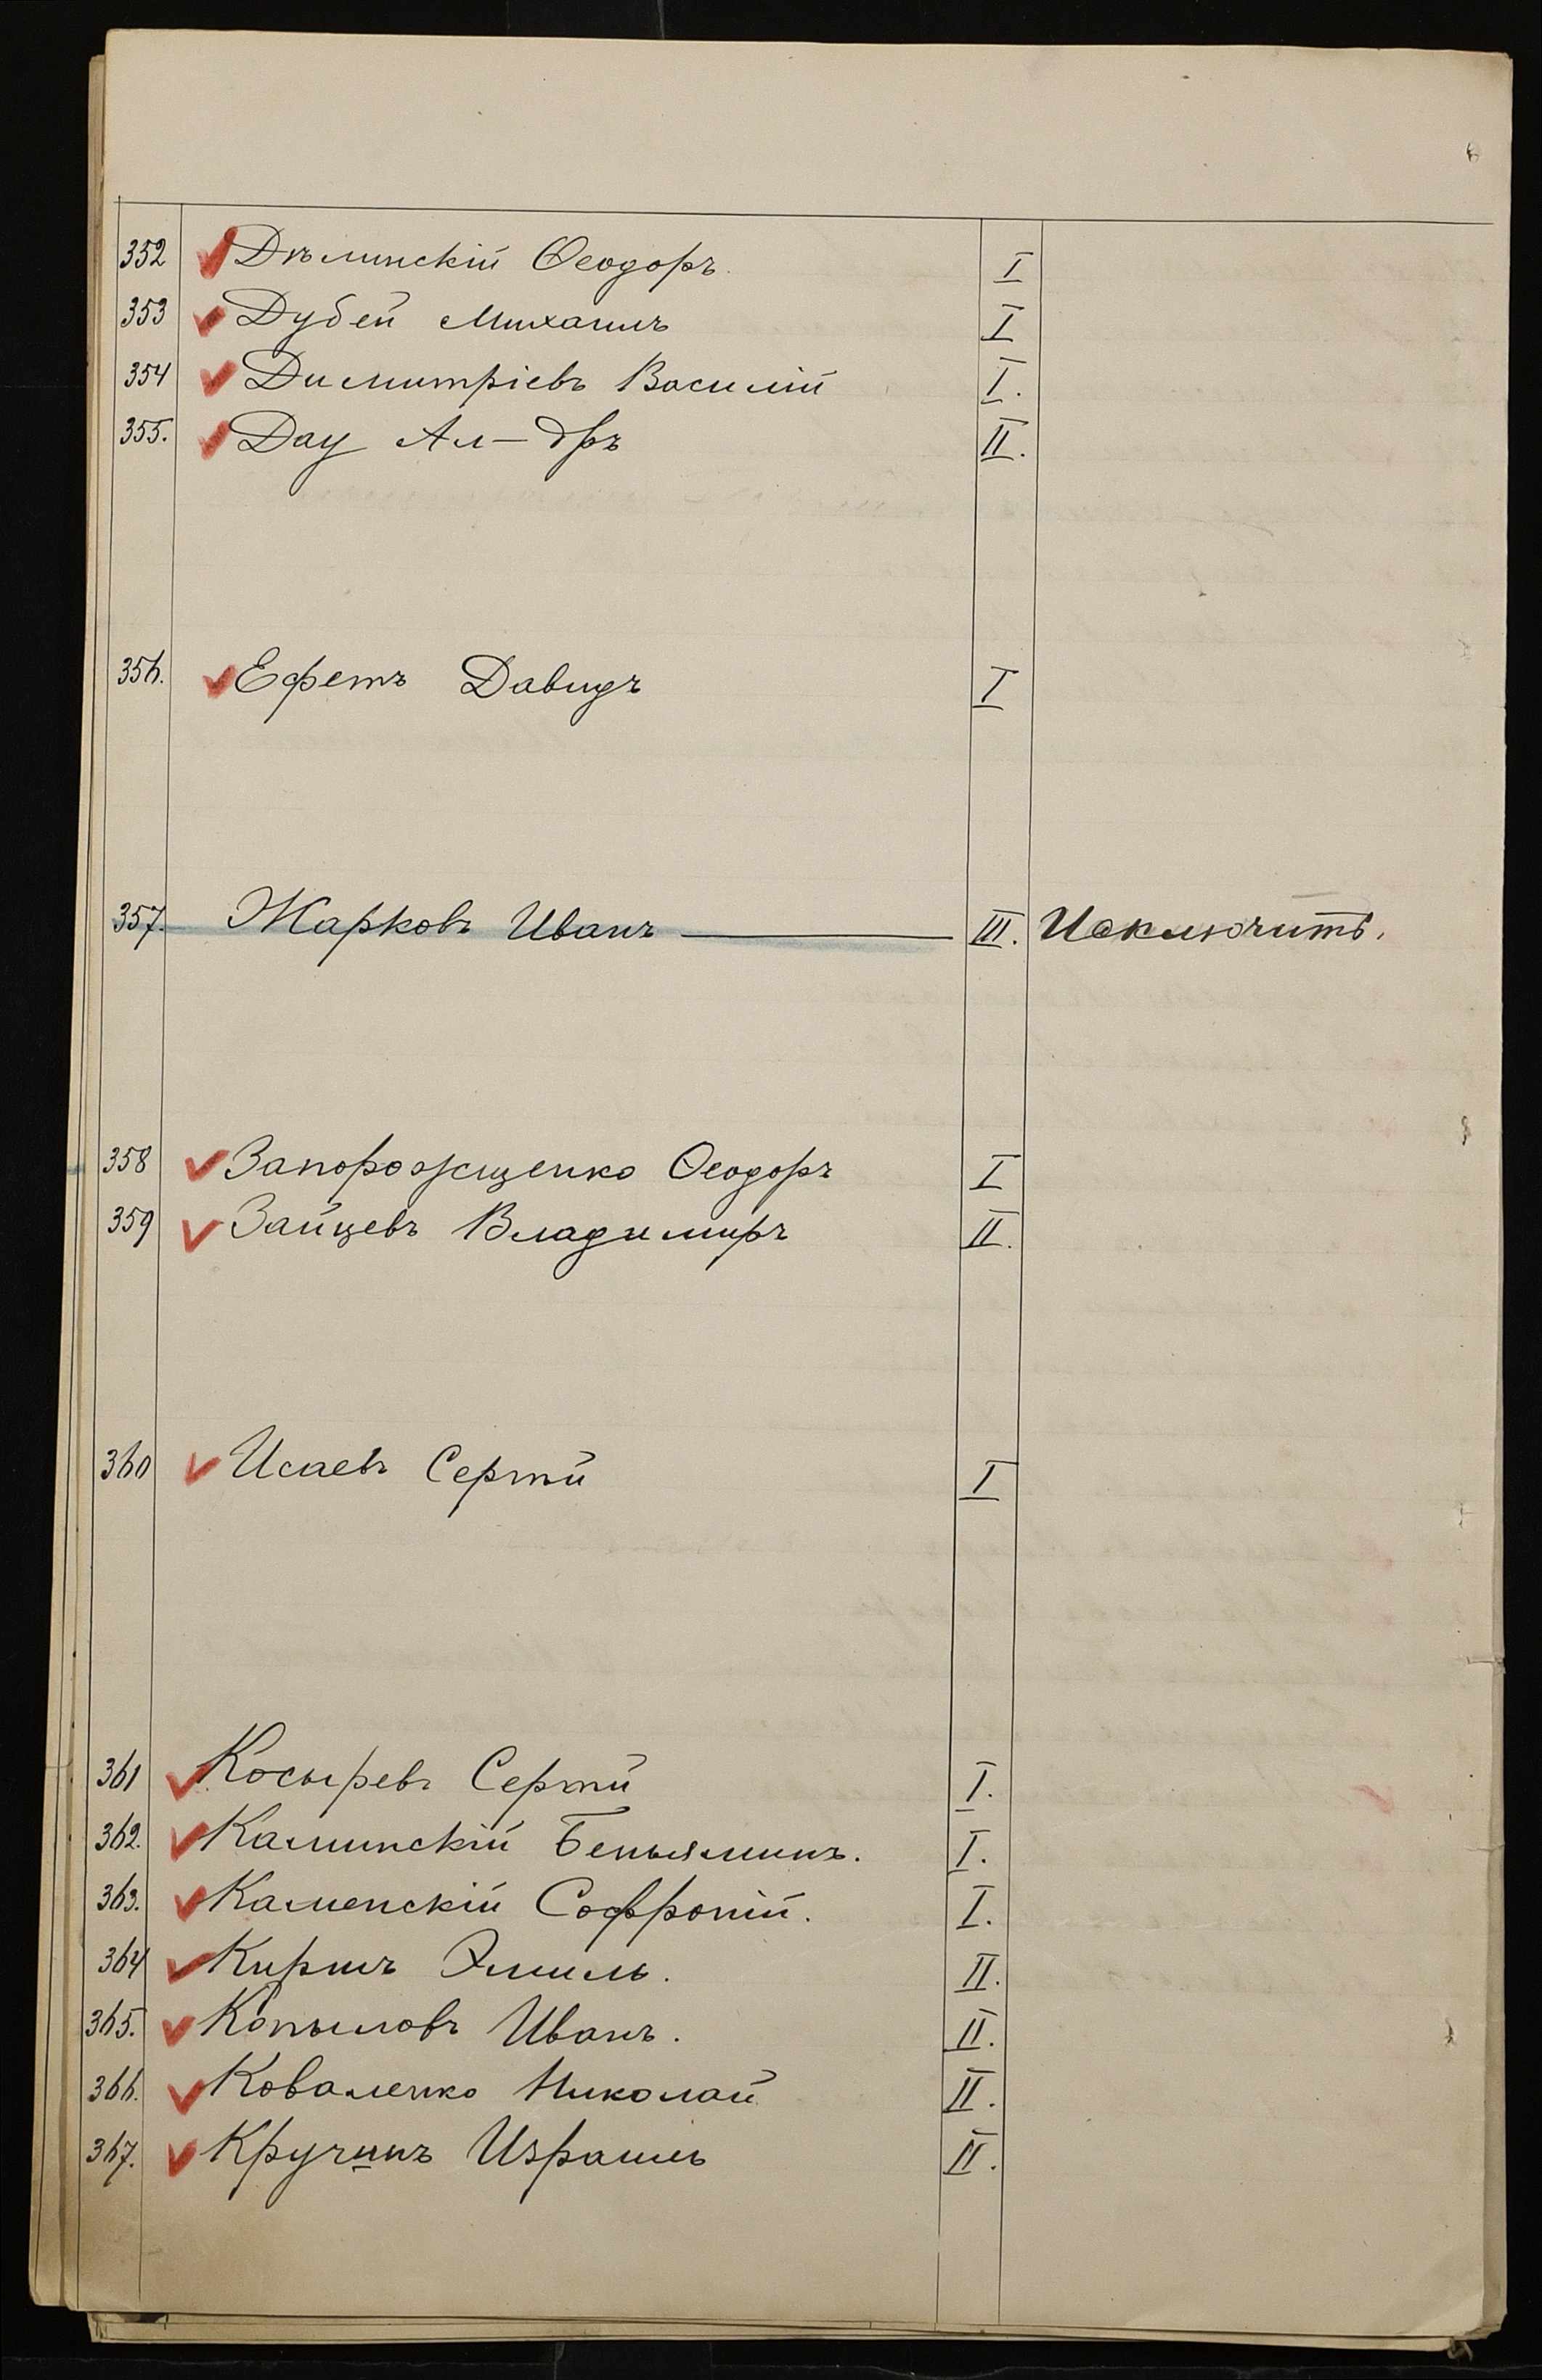 352 Дѣлинскій Ѳеодоръ. I
353 Дубей Михаилъ I
354 Димитріевъ Василій I.
355. Дау Ал-дръ II.
356. Ефетъ Давидъ I
357. Жарковъ Иванъ — III. Исключить.
358 Запорожщенко Ѳеодоръ I
359 Зайцевъ Владимиръ II.
360 Исаевъ Сергѣй I
361 Косыревъ Сергѣй I.
362. Калинскій Беньяминъ. I.
363. Каменскій Софроній. I.
364 Киршъ Эмиль. II.
365. Копыловъ Иванъ. II.
366. Коваленко Николай II.
367. Кручинъ Израиль II.